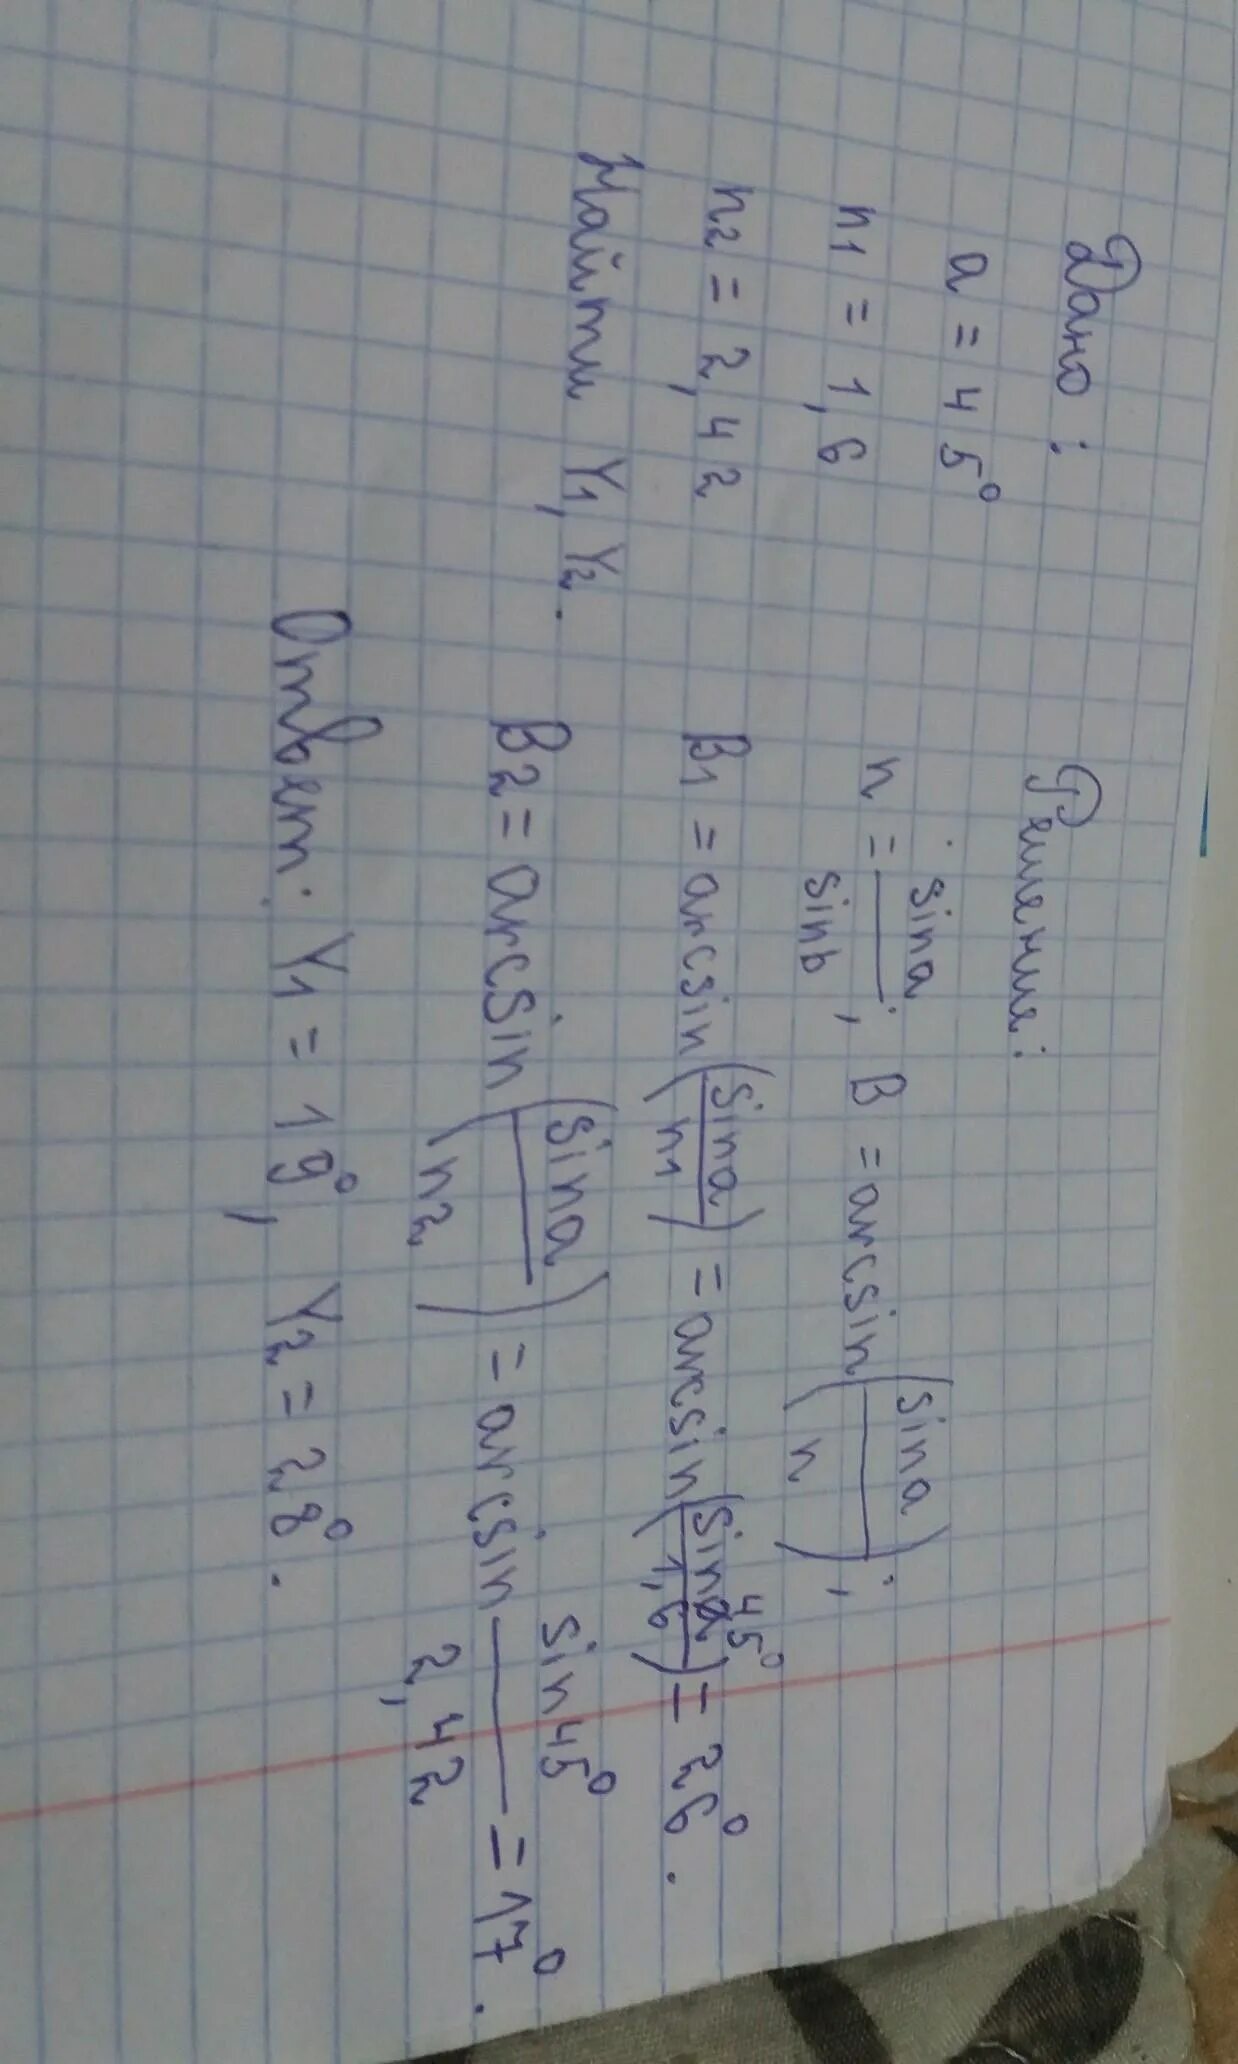 Дано:
a = 45°
n1 = 1,6
n2 = 2,42
Найти Y1, Y2.
Решение:
n = sina / sinb ; B = arcsin (sina / n) ;
B1 = arcsin (sina / n1) = arcsin (sin 45° / 1,6) = 26°.
B2 = arcsin (sina / n2) = arcsin sin45° / 2,42 = 17°.
Ответ: Y1 = 19°, Y2 = 28°.